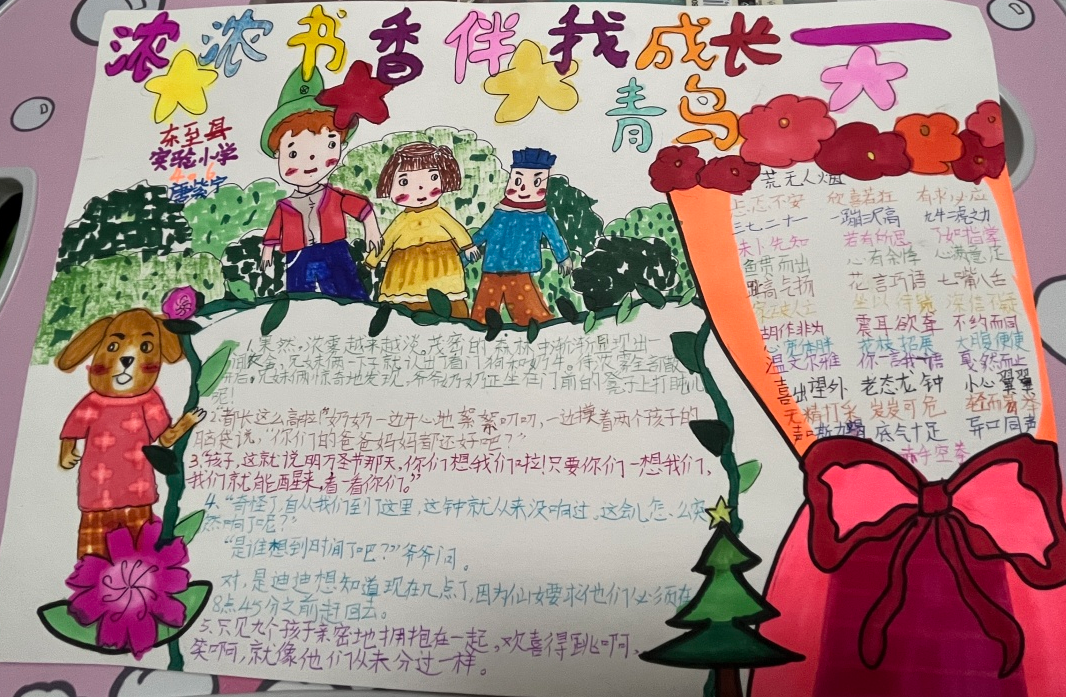 浓浓书香伴我成长——
青鸟
东至县
实验小学
4.6
唐紫宁
1.果然,浓雾越来越淡,茂密的森林中渐渐显现出一
间农舍,兄妹俩一下就认出看门狗和奶牛。待浓雾全部散
开后,兄妹俩惊奇地发现,爷爷奶奶正坐在门前的凳子上打盹儿
呢!
2."都长这么高啦"奶奶一边开心地絮絮叨叨,一边摸着两个孩子的
脑袋说,"你们的爸爸妈妈都还好吧?"
3.孩子,这就说明万圣节那天,你们想我们啦!只要你们一想我们,
我们就能醒来,看一看你们。"
4."奇怪了,自从我们到了这里,这钟就从来没响过,这会儿怎么突
然响了呢?"
"是谁想到时间了吧?"爷爷问。
对,是迪迪想知道现在几点了,因为仙女要求他们必须在
8点45分之前赶回去。
5.只见九个孩子亲密地拥抱在一起,欢喜得跳啊,
笑啊,就像他们从未分过一样。
荒无人烟
忐忑不安 欣喜若狂 有求必应
三七二十一 一蹦三尺高 九牛二虎之力
未卜先知 若有所思 了如指掌
鱼贯而出 心有余悸 心满意足
趾高气扬 花言巧语 七嘴八舌
坐以待毙 深信不疑
胡作非为 震耳欲聋 不约而同
心宽体胖 花枝招展 大腹便便
温文尔雅 你一言我一语 戛然而止
喜出望外 老态龙钟 小心翼翼
无精打采 岌岌可危 轻而易举
声嘶力竭 底气十足 异口同声
赤手空拳